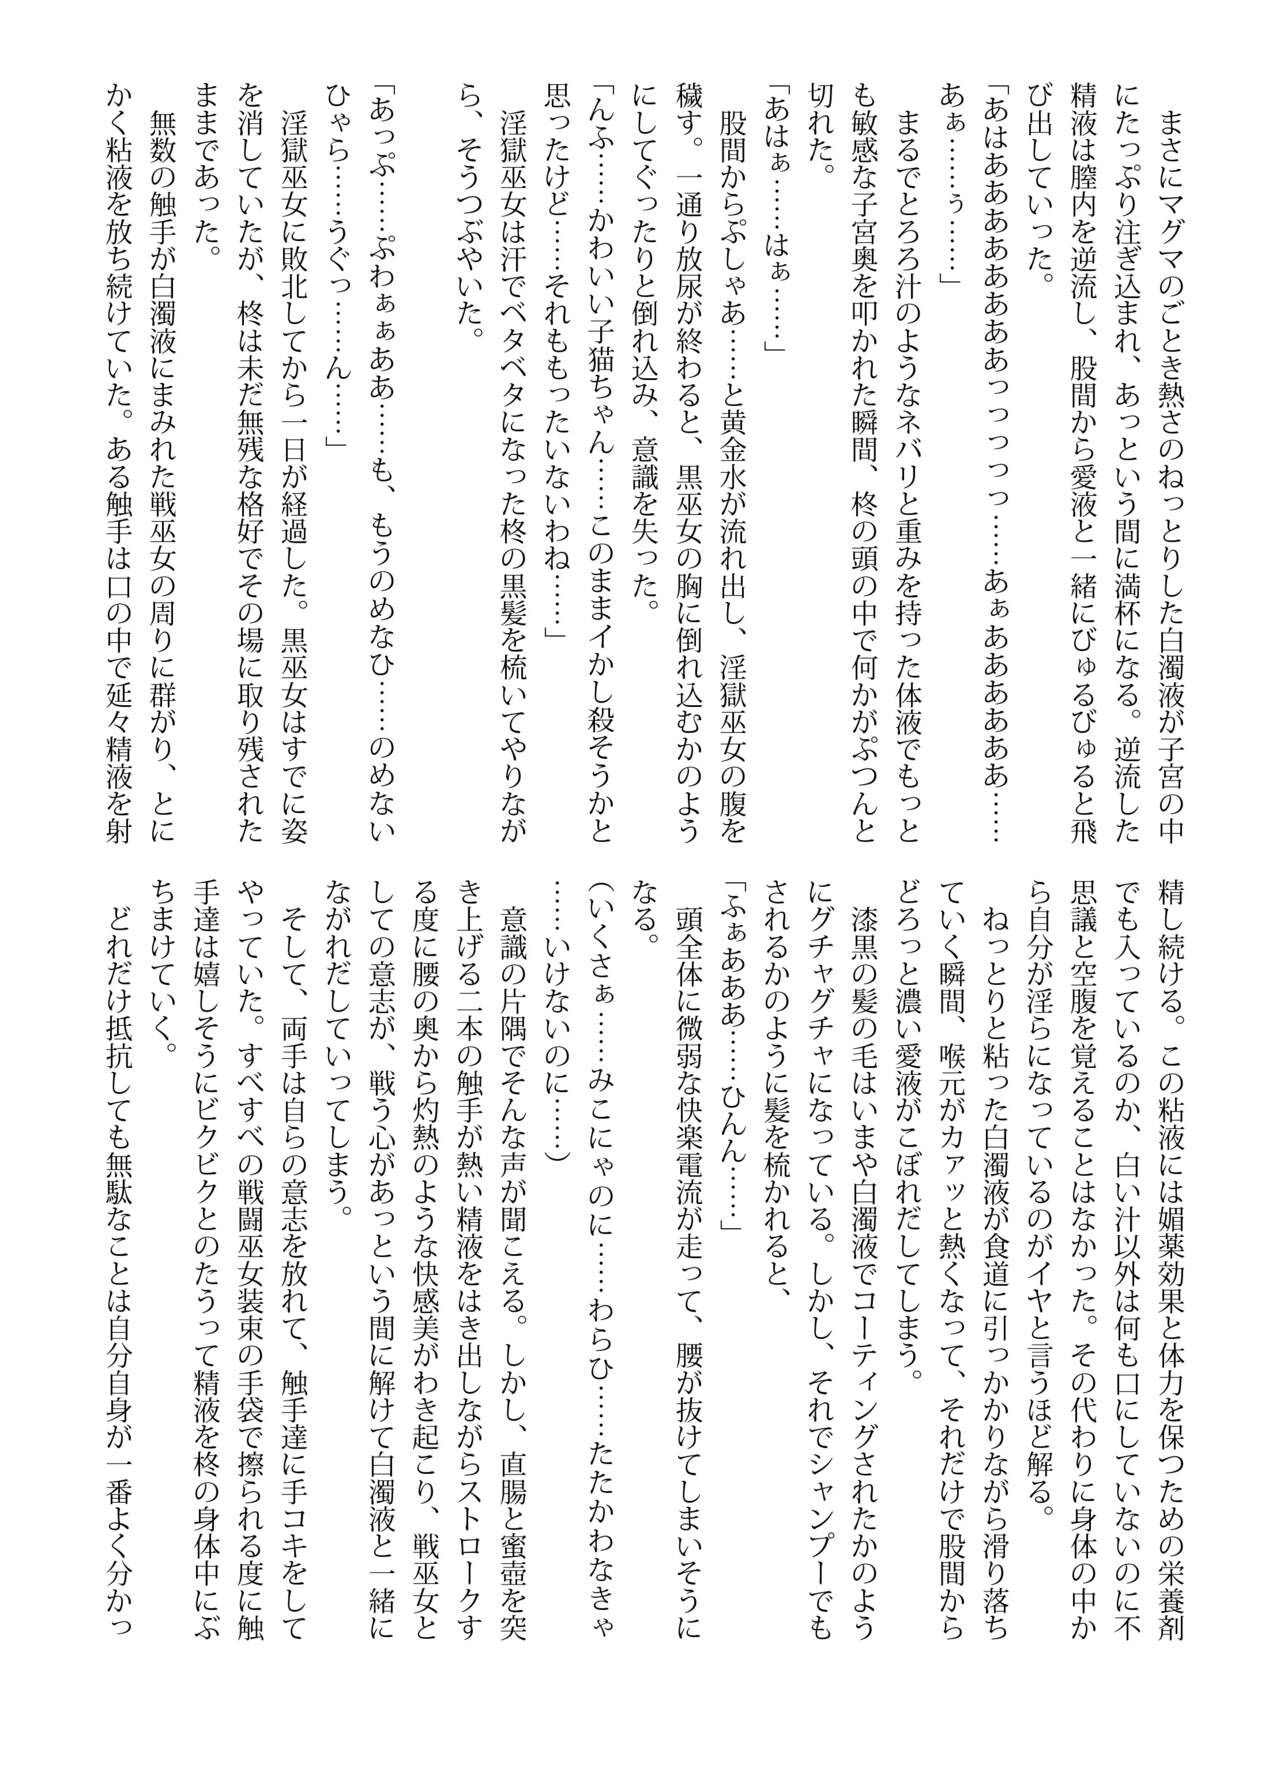 まさにマグマのごとき熱さのねっとりした白濁液が子宮の中
にたっぷり注ぎ込まれ、あっという間に満杯になる。逆流した
精液は膣内を逆流し、股間から愛液と一緒にびゅるびゅると飛
び出していった。
「あはあああああああああっっっっっ……あぁああああああ……
あぁ……ぅ……」
まるでとろろ汁のようなネバリと重みを持った体液でもっと
も敏感な子宮奥を叩かれた瞬間、柊の頭の中で何かがぷつんと
切れた。
「あはぁ……はぁ……」
股間からぷしゃあ……と黄金水が流れ出し、淫獄巫女の腹を
穢す。一通り放尿が終わると、黒巫女の胸に倒れ込むかのよう
にしてぐったりと倒れ込み、意識を失った。
「んふ……かわいい子猫ちゃん……このままイかし殺そうかと
思ったけど……それももったいないわね……」
淫獄巫女は汗でベタベタになった柊の黒髪を梳いてやりなが
ら、そうつぶやいた。
「あっぷ……ぷわぁぁああ……も、もうのめなひ……のめない
ひゃら……うぐっ……ん……」
淫獄巫女に敗北してから一日が経過した。黒巫女はすでに姿
を消していたが、柊は未だ無残な格好でその場に取り残された
ままであった。
無数の触手が白濁液にまみれた戦巫女の周りに群がり、とに
かく粘液を放ち続けていた。ある触手は口の中で延々精液を射
精し続ける。この粘液には媚薬効果と体力を保つための栄養剤
でも入っているのか、白い汁以外は何も口にしていないのに不
思議と空腹を覚えることはなかった。その代わりに身体の中か
ら自分が淫らになっているのがイヤと言うほど解る。
ねっとりと粘った白濁液が食道に引っかかりながら滑り落ち
ていく瞬間、喉元がカァッと熱くなって、それだけで股間から
どろっと濃い愛液がこぼれだしてしまう。
漆黒の髪の毛はいまや白濁液でコーティングされたかのよう
にグチャグチャになっている。しかし、それでシャンプーでも
されるかのように髪を梳かれると、
「ふぁあああ……ひんん……」
頭全体に微弱な快楽電流が走って、腰が抜けてしまいそうに
なる。
（いくさぁ……みこにゃのに……わらひ……たたかわなきゃ
……いけないのに……）
意識の片隅でそんな声が聞こえる。しかし、直腸と蜜壺を突
き上げる二本の触手が熱い精液をはき出しながらストロークす
る度に腰の奥から灼熱のような快感美がわき起こり、戦巫女と
しての意志が、戦う心があっという間に解けて白濁液と一緒に
ながれだしていってしまう。
そして、両手は自らの意志を放れて、触手達に手コキをして
やっていた。すべすべの戦闘巫女装束の手袋で擦られる度に触
手達は嬉しそうにビクビクとのたうって精液を柊の身体中にぶ
ちまけていく。
どれだけ抵抗しても無駄なことは自分自身が一番よく分かっ